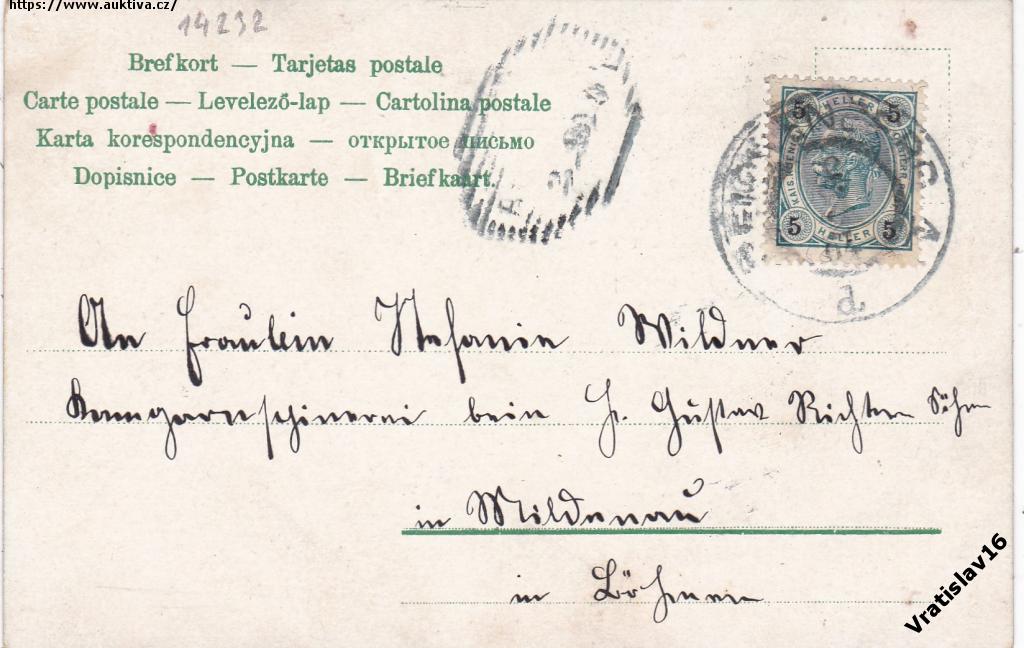 https://www.auktiva.cz/
14232
Brefkort — Tarjetas postale
Carte postale — Levelező-lap — Cartolina postale
Karta korespondencyjna — открытое письмо
Dopisnice — Postkarte — Briefkaart.
5 HELLER 5
5 HELLER 5
d
An Fräulein Stefanie Wildner
bein H. Gustav Richter Söhne
in Mildenau
in Böhmen
Vratislav16